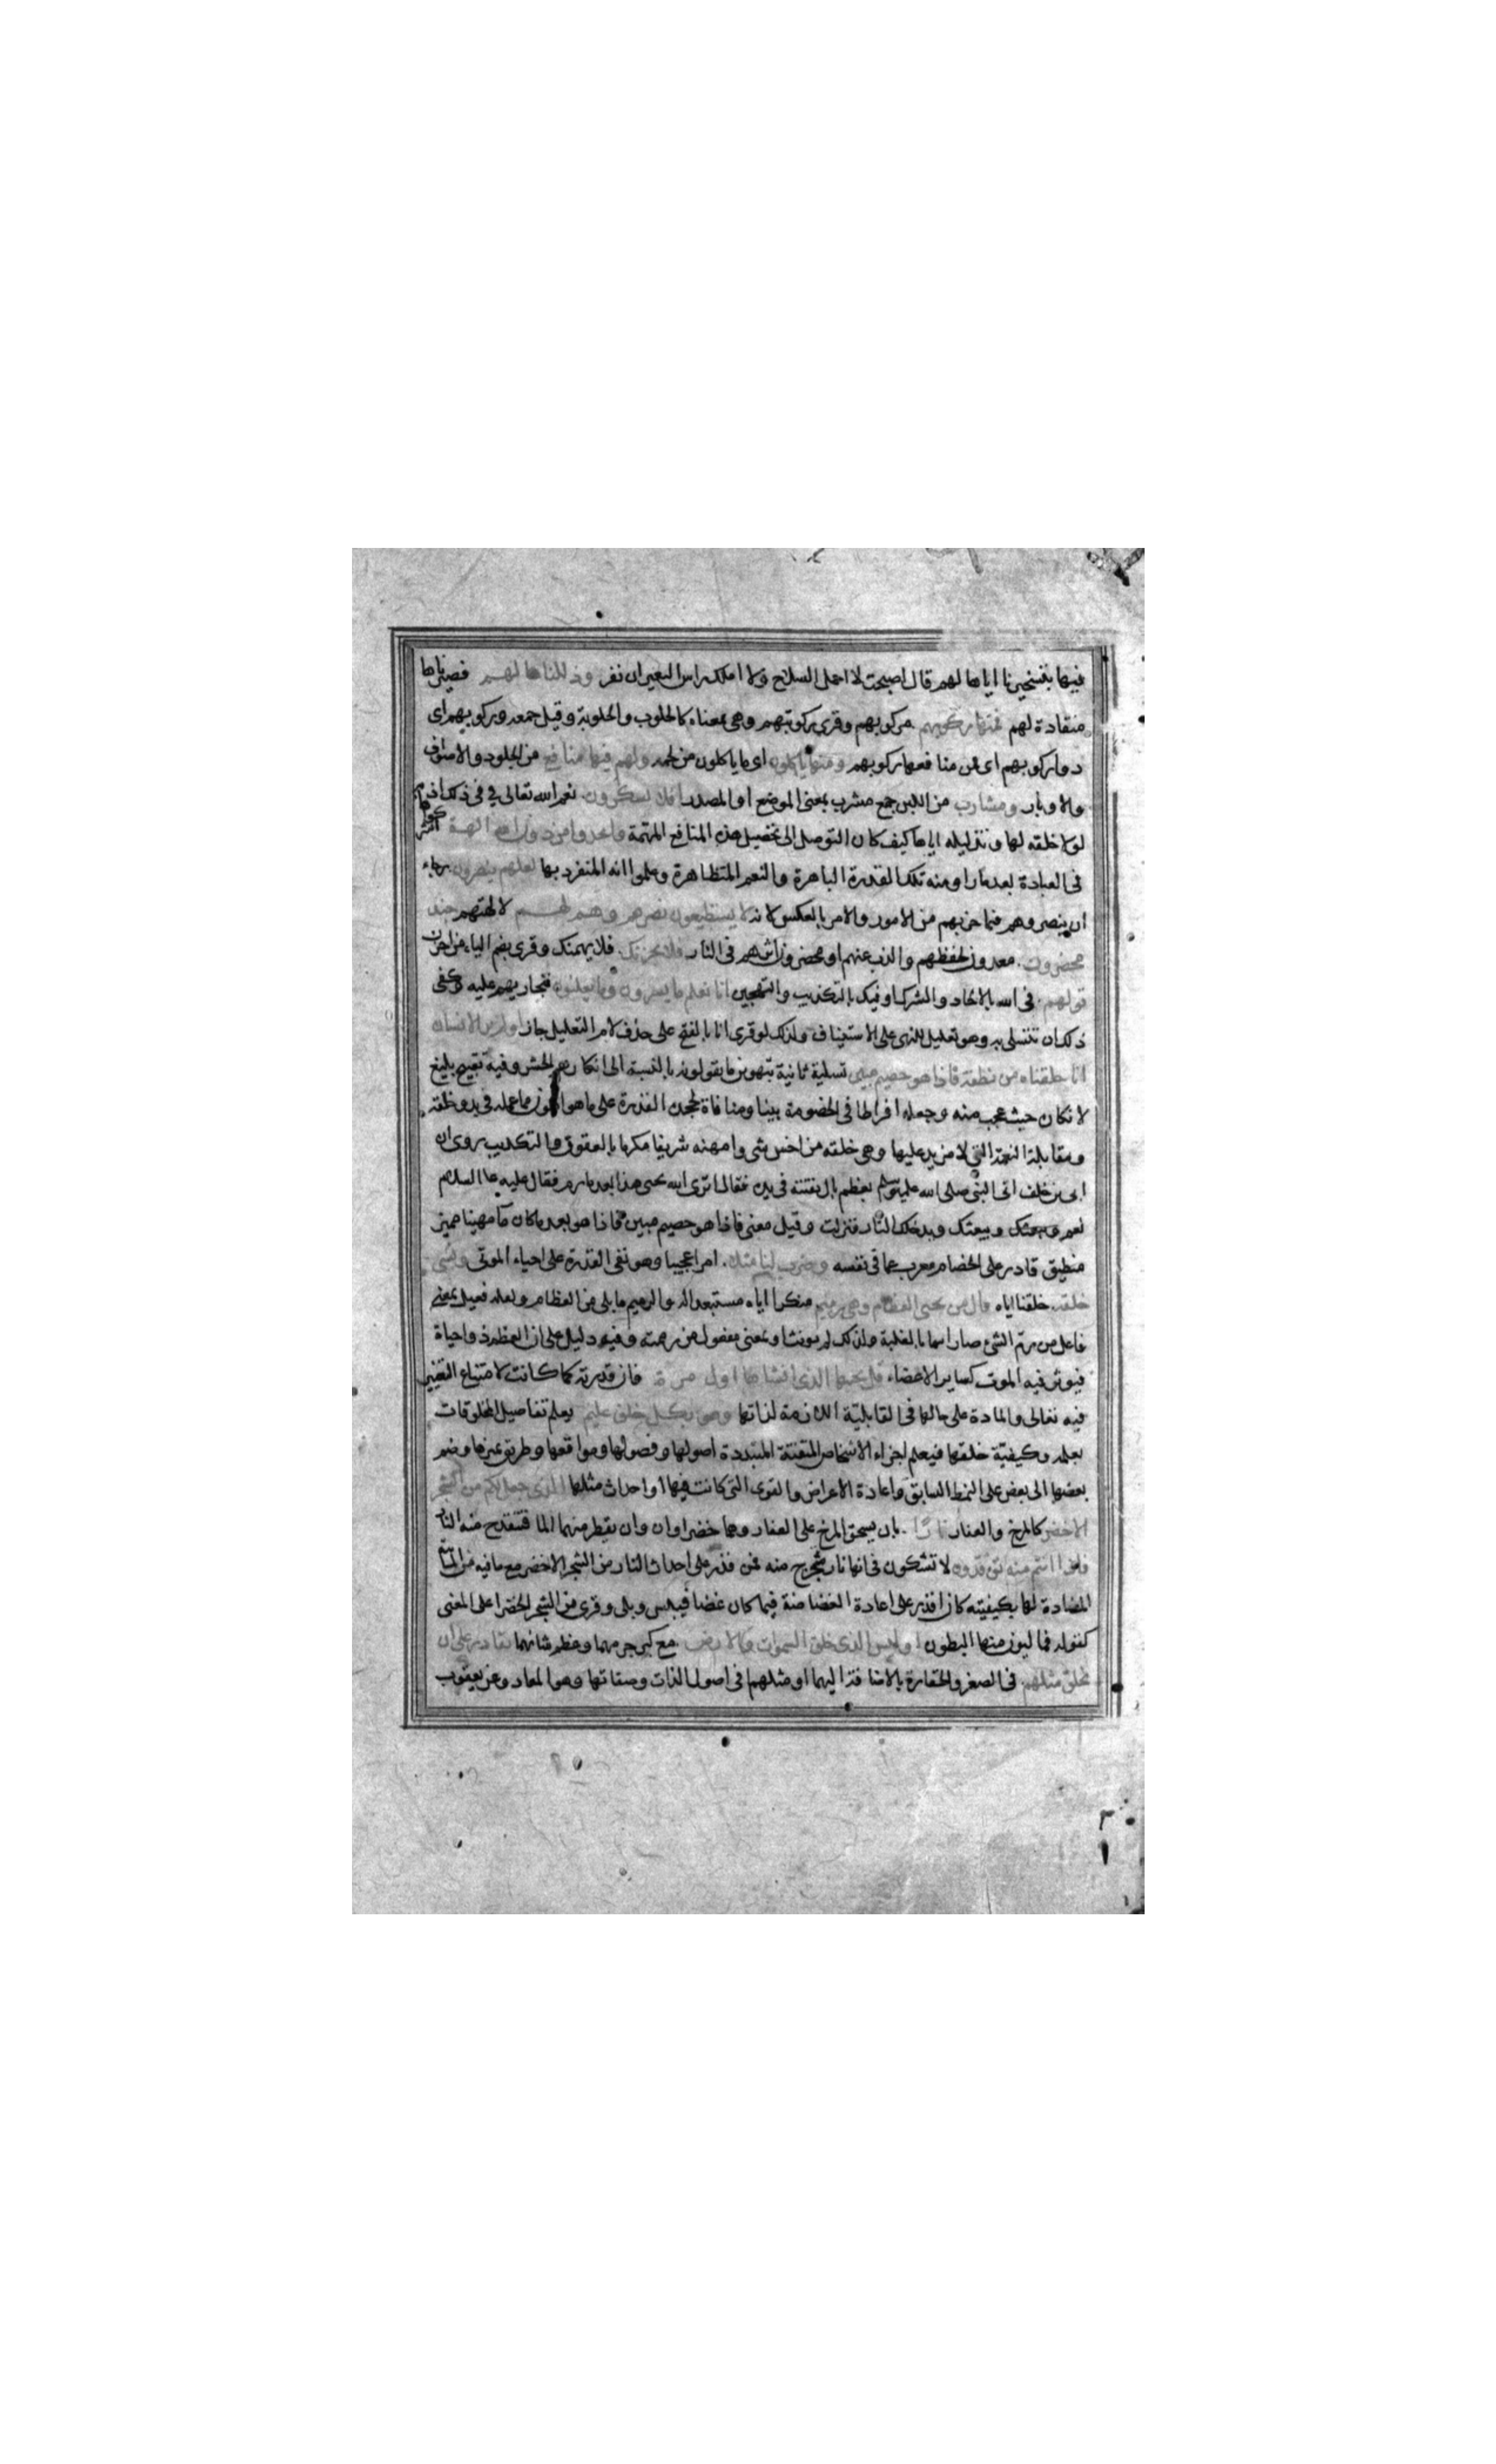 فيها بتسخيرنا اياها لهم قال اصبحت لا احمل السلاح ولا املك راس البعير ان نفر وذللناها لهم فصيرناها
منقادة لهم فمنها ركوبهم مركوبهم وقرئ ركوبتهم وهى بمعناه كالحلوب والحلوبة وقيل جمعه وركوبهم اى
ذو ركوبهم اى فمن منافعها ركوبهم ومنها ياكلون اى ما ياكلون من لحمه ولهم فيها منافع من الجلود والاصواف
والاوبار ومشارب من اللبن جمع مشرب بمعنى الموضع او المصدر افلا يشكرون نعم الله تعالى فى ذلك اذ
لولا خلقه لها وتذليله اياها كيف كان التوصل الى تحصيل هذه المنافع المهمة واتخذوا من دون الله الهة اشركوها
فى العبادة بعد ما راو منه تلك القدرة الباهرة والنعم المتظاهرة وعلموا انه المنفرد بها لعلهم ينصرون رجاء
ان ينصروهم فيما حزبهم من الامور والامر بالعكس لانه لا يستطيعون نصرهم وهم لهم لالهتهم جند
محضرون معدون لحفظهم والذب عنهم او محضرون اثرهم فى النار فلا يحزنك فلا يهمنك وقرئ بضم الياء من احزن
قولهم فى الله بالالحاد والشرك او فيك بالتكذيب والتهجين انا نعلم ما يسرون وما يعلنون فنجازيهم عليه وكفى
ذلك ان تتسلى به وهو تعليل للنهى على الاستيناف ولذلك لو قرئ انا بالفتح على حذف لام التعليل جاز اولم ير الانسان
انا خلقناه من نطفة فاذا هو خصيم مبين تسلية ثانية بتهوين ما يقولونه بالنسبة الى انكارهم الحشر وفيه تقبيح بليغ
لانكان حيث عجب منه وجعله افراطا فى الخصومة بينا ومنافاة لجحد القدرة على ما هو اهون مما عمله فى بدو خلقه
ومقابلة النعمة التى لا مزيد عليها وهى خلقه من اخس شى وامهنه شريفا مكرما بالعقوق والتكذيب روى ان
ابى بن خلف اتى النبى صلى الله عليه وسلم بعظم بال يفتته فى يده فقال اترى الله يحيى هذا بعد ما رم فقال عليه السلام
نعم ويبعثك ويدخلك النار فنزلت وقيل معنى فاذا هو خصيم مبين فاذا هو بعد ما كان مآ مهينا مميز
منطيق قادر على الخصام معرب عما فى نفسه وضرب لنا مثلا امرا عجيبا وهو نفى القدرة على احياء الموتى ونسى
خلقه خلقنا اياه قال من يحيى العظام وهى رميم منكرا اياه مستبعدا له والرميم ما بلى من العظام ولعله فعيل بمعنى
فاعل من رمّ الشئ صار اسما بالغلبة ولذلك لم يونث او بمعنى مفعول من رممته وفيه دليل على ان العظم ذو حياة
فيوثر فيه الموت كساير الاعضاء قل يحيها الذى انشاها اول مرة فان قدرته كما كانت لامتناع التغير
فيه تعالى والمادة على حالها فى القابلية اللازمة لذاتها وهو بكل خلق عليم يعلم تفاصيل المخلوقات
بعلمه وكيفية خلقها فيعلم اجزاء الاشخاص المتفتتة المتبددة اصولها وفصولها ومواقعها وطريق تميزها وضم
بعضها الى بعض على النمط السابق واعادة الاعراض والقوى التى كانت فيها او احداث مثلها الذى جعل لكم من الشجر
الاخضر كالمرخ والعفار نارا بان يسحق المرخ على العفار وهما خضراوان وان يقطر منهما الما فتنقدح منه النار
فاذا انتم منه توقدون لا تشكون فى انها نار تخرج منه فمن قدر على احداث النار من الشجر الاخضر مع ما فيه من المائية
المضادة لها بكيفيته كان اقدر على اعادة الغضاضة فيما كان غضا فيبس وبلى وقرئ من الشجر الخضرا على المعنى
كقوله فمالئون منها البطون اوليس الذى خلق السموات والارض مع كبر جرمهما وعظم شانهما بقادر على ان
يخلق مثلهم فى الصغر والحقارة بالاضافة اليهما او مثلهم فى اصول الذات وصفاتها وهو المعاد وعن يعقوب